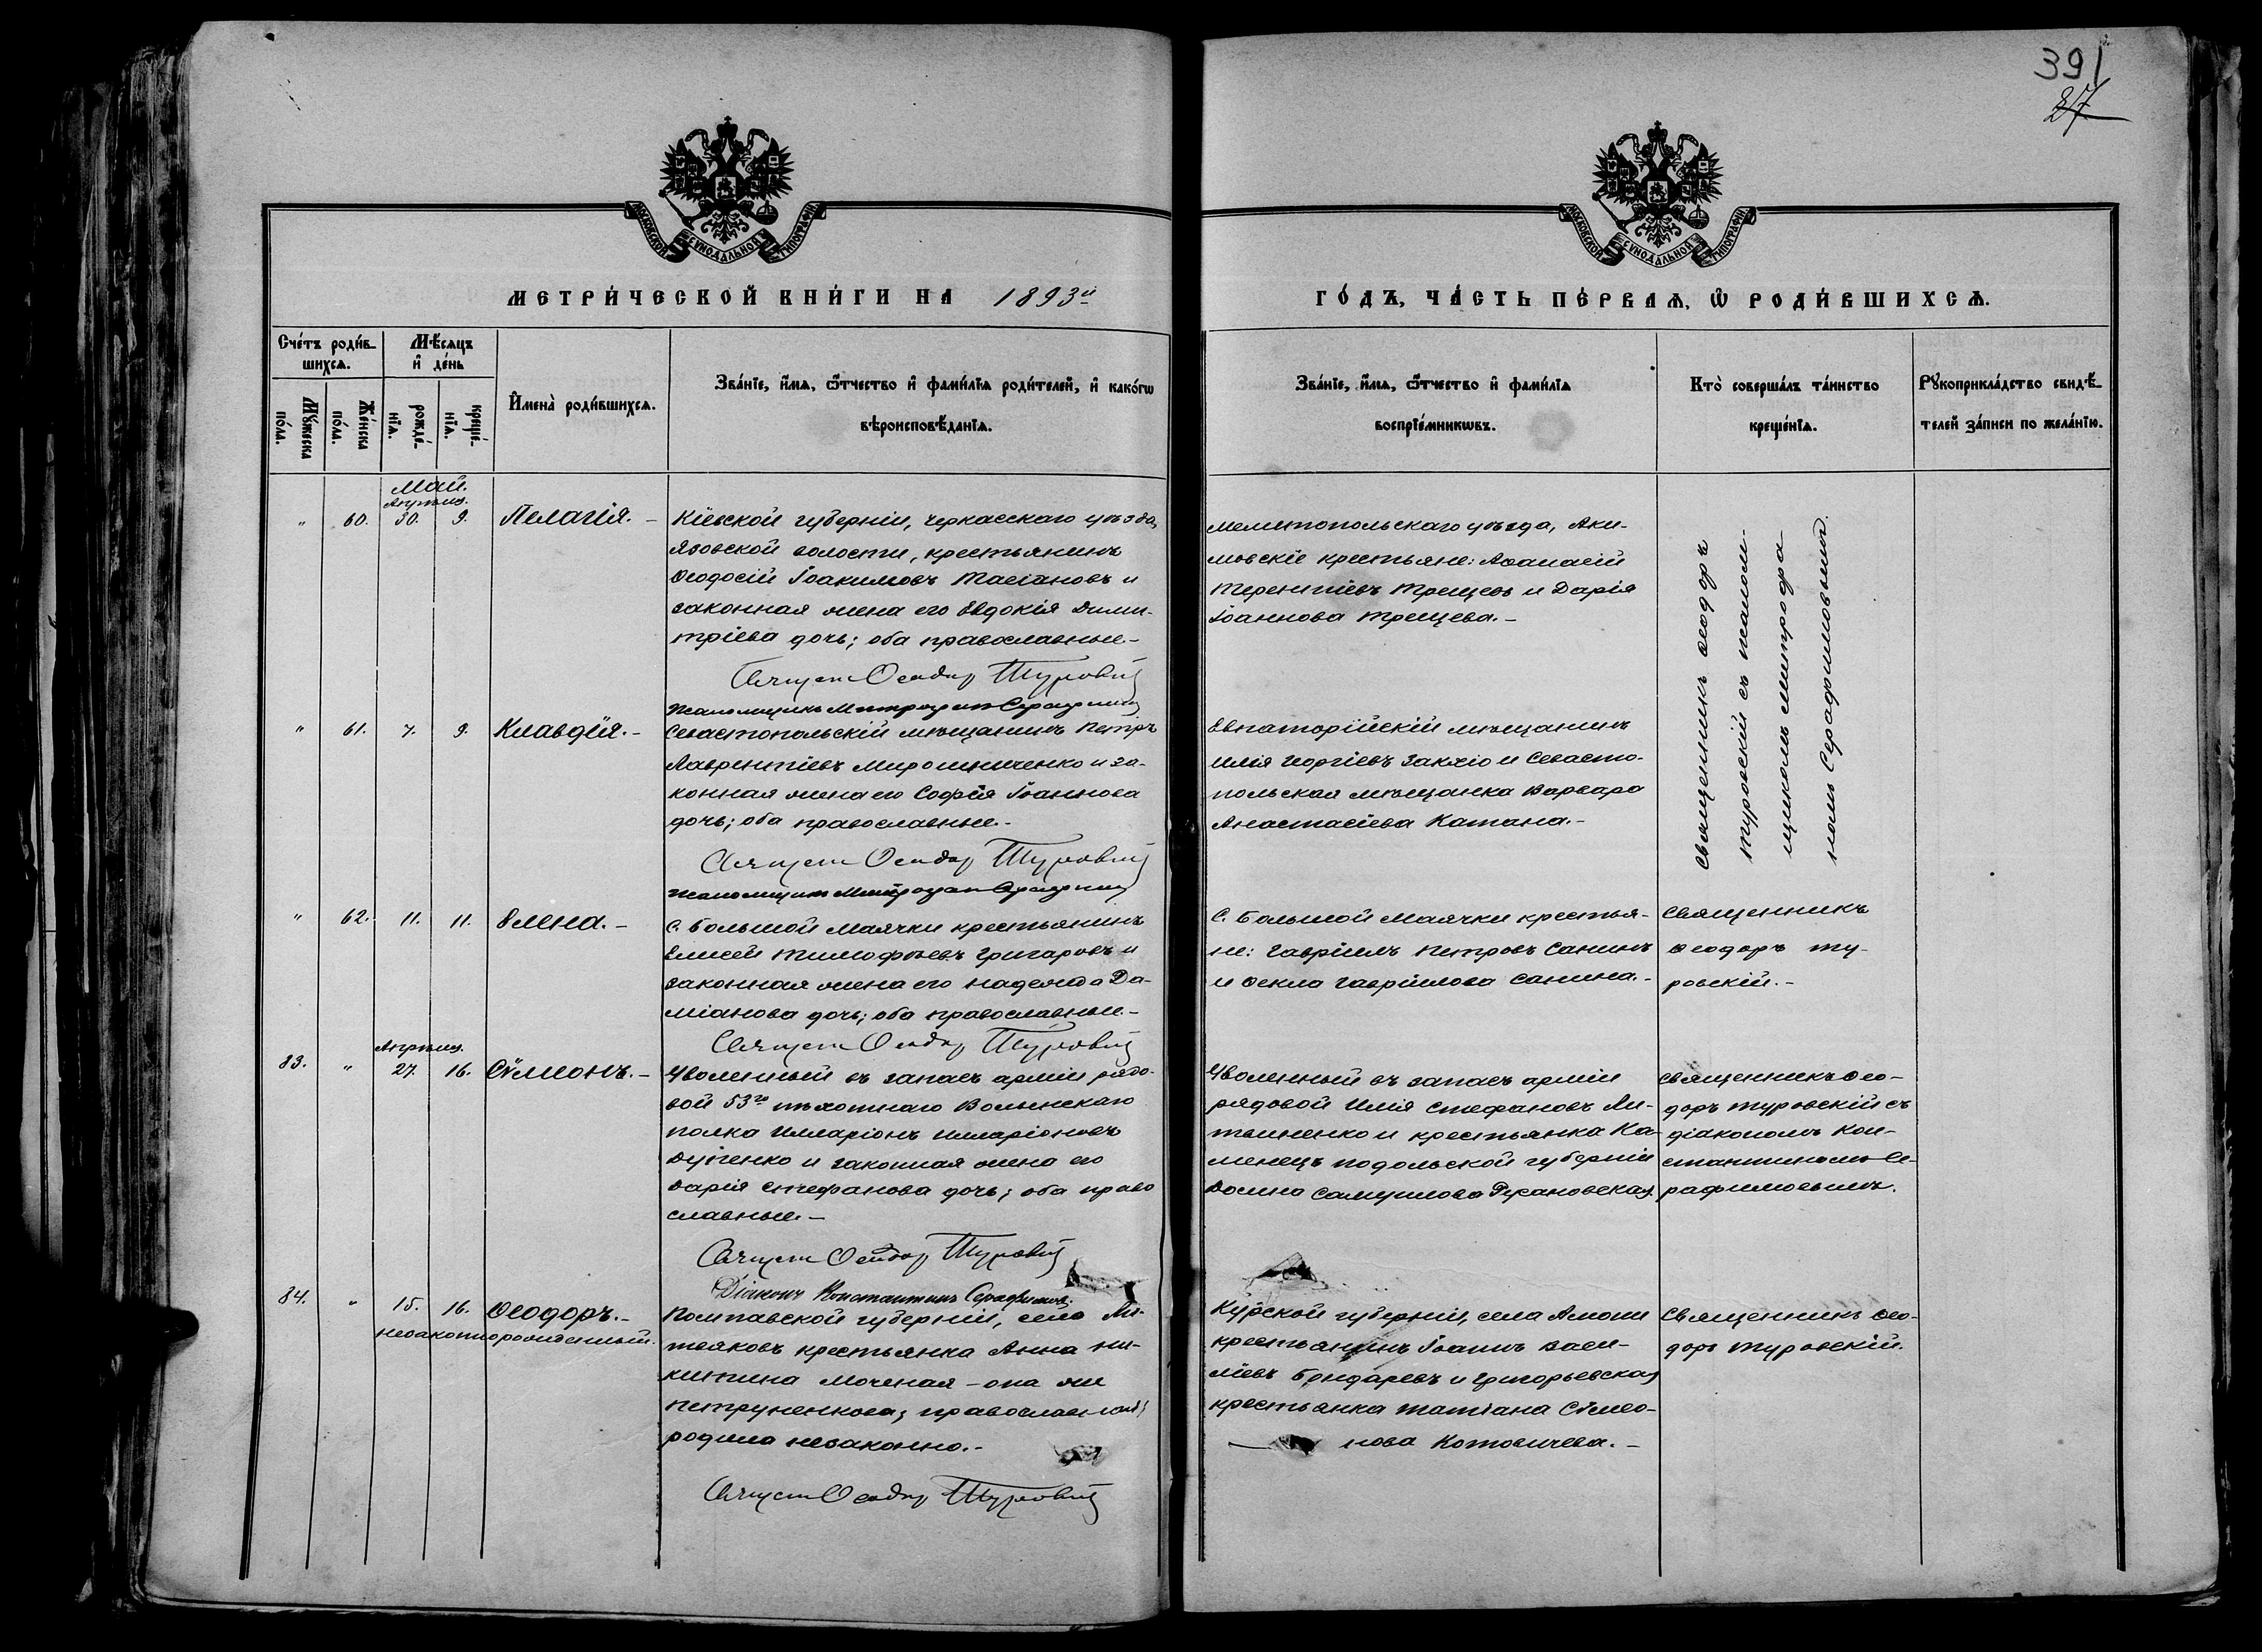 391
27
МОСКОВСКОЙ СѴНОДАЛЬНОЙ ТИПОГРАФІИ
МОСКОВСКОЙ СѴНОДАЛЬНОЙ ТИПОГРАФІИ
МЕТРИ́ЧЕСКОЙ КНИ́ГИ НА 1893й
ГО́ДЪ, ЧА́СТЬ ПЕ́РВАѦ, Ѡ҆ РОДИ́ВШИХСѦ.
Сче́тъ роди́в-
шихсѧ.
Мѣ́сяцъ
и҆ де́нь
Мꙋ́жеска по́ла.
Же́нска по́ла.
рожде́-нїѧ.
креще́-нїѧ.
И҆мена̀ роди́вшихсѧ.
Зва́нїе, и҆́мѧ, ѻ҆́тчество и҆ фами́лїѧ роди́телей, и҆ како́гѡ
вѣроисповѣ́данїѧ.
Зва́нїе, и҆́мѧ, ѻ҆́тчество и҆ фами́лїѧ
воспрїе́мникѡвъ.
Кто̀ соверша́лъ та́инство
креще́нїѧ.
Рꙋкоприкла́дство свидѣ́-
телей за́писи по жела́нїю.
Май.
Апрѣля.
" 60. 30. 9. Пелагія. –
Кіевской губерніи, Черкасскаго уѣзда,
волости, крестьянинъ
Ѳеодосій Іоакимовъ и
законная жена его Евдокія Дими-
тріева дочь; оба православные. –
Священ Ѳеодор Туровскій
Псаломщикъ Митрофан Серафимов
Мелитопольскаго уѣзда, Аки-
мовскіе крестьяне: Аѳанасій
Терентіевъ Трещевъ и Дарія
Іоаннова Трещева. –
Священникъ Ѳеодоръ
Туровскій съ псалом-
щикомъ Митрофа-
номъ Серафимовымъ.
" 61. 7. 9. Клавдія. –
Севастопольскій мѣщанинъ Петръ
Лаврентіевъ Мирошниченко и за-
конная жена его Софія Іоаннова
дочь; оба православные. –
Священ Ѳеодор Туровскій
Псаломщикъ Митрофан Серафимов
Евпаторійскій мѣщанинъ
Илія Георгіевъ и Севасто-
польская мѣщанка Варвара
Анастасіева Катана. –
" 62. 11. 11. Елена. –
С. Большой Маячки крестьянинъ
Елисей Тимофѣевъ Григоровъ и
законная жена его Надежда Да-
міанова дочь; оба православные –
Священ Ѳеодор Туровскій
С. Большой Маячки крестья-
не: Гавріилъ Петровъ Санинъ
и Ѳекла Гавріилова Санина. –
Священникъ
Ѳеодоръ Ту-
ровскій. –
Апрѣля.
83. " 27. 16. Сѵмеонъ. –
Уволенный въ запасъ арміи рядо-
вой 53го пѣхотнаго Волынскаго
полка Илларіонъ Илларіоновъ
и законная жена его
Дарія Стефанова дочь; оба право
славные. –
Священ Ѳеодор Туровскій
Діаконъ Константинъ Серафимов.
Уволенный въ запасъ арміи
рядовой Илія Стефановъ Ли-
твиненко и крестьянка Ка-
менецъ Подольской губерніи
Домна Самуилова
Священникъ Ѳео-
доръ Туровскій съ
діакономъ Кон-
стантиномъ Се-
рафимовымъ.
84. " 15. 16. Ѳеодоръ. –
незаконнорожденный.
Полтавской губерніи, село
крестьянка Анна Ни-
китина Моченая – она же
Петруненкова; православная;
родила незаконно. –
Священ Ѳеодор Туровскій
Курской губерніи, села Амони
крестьянинъ Іоаннъ Васи-
ліевъ Бондаревъ и Григорьевская
крестьянка Татіана Сѵмео-
нова Котовичева. –
Священникъ Ѳео-
доръ Туровскій.